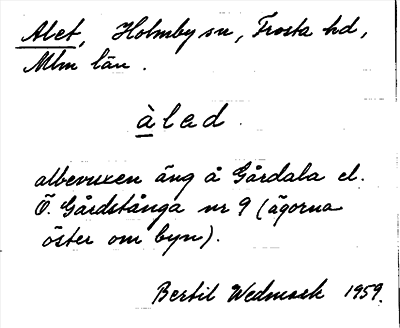 Alet, Holmby sn, Frosta hd,
Mlm län.
àlad.
albevuxen äng å Gårdala el.
Ö. Gårdstånga nr 9 (ägorna
öster om byn).
Bertil Wedmark 1959.